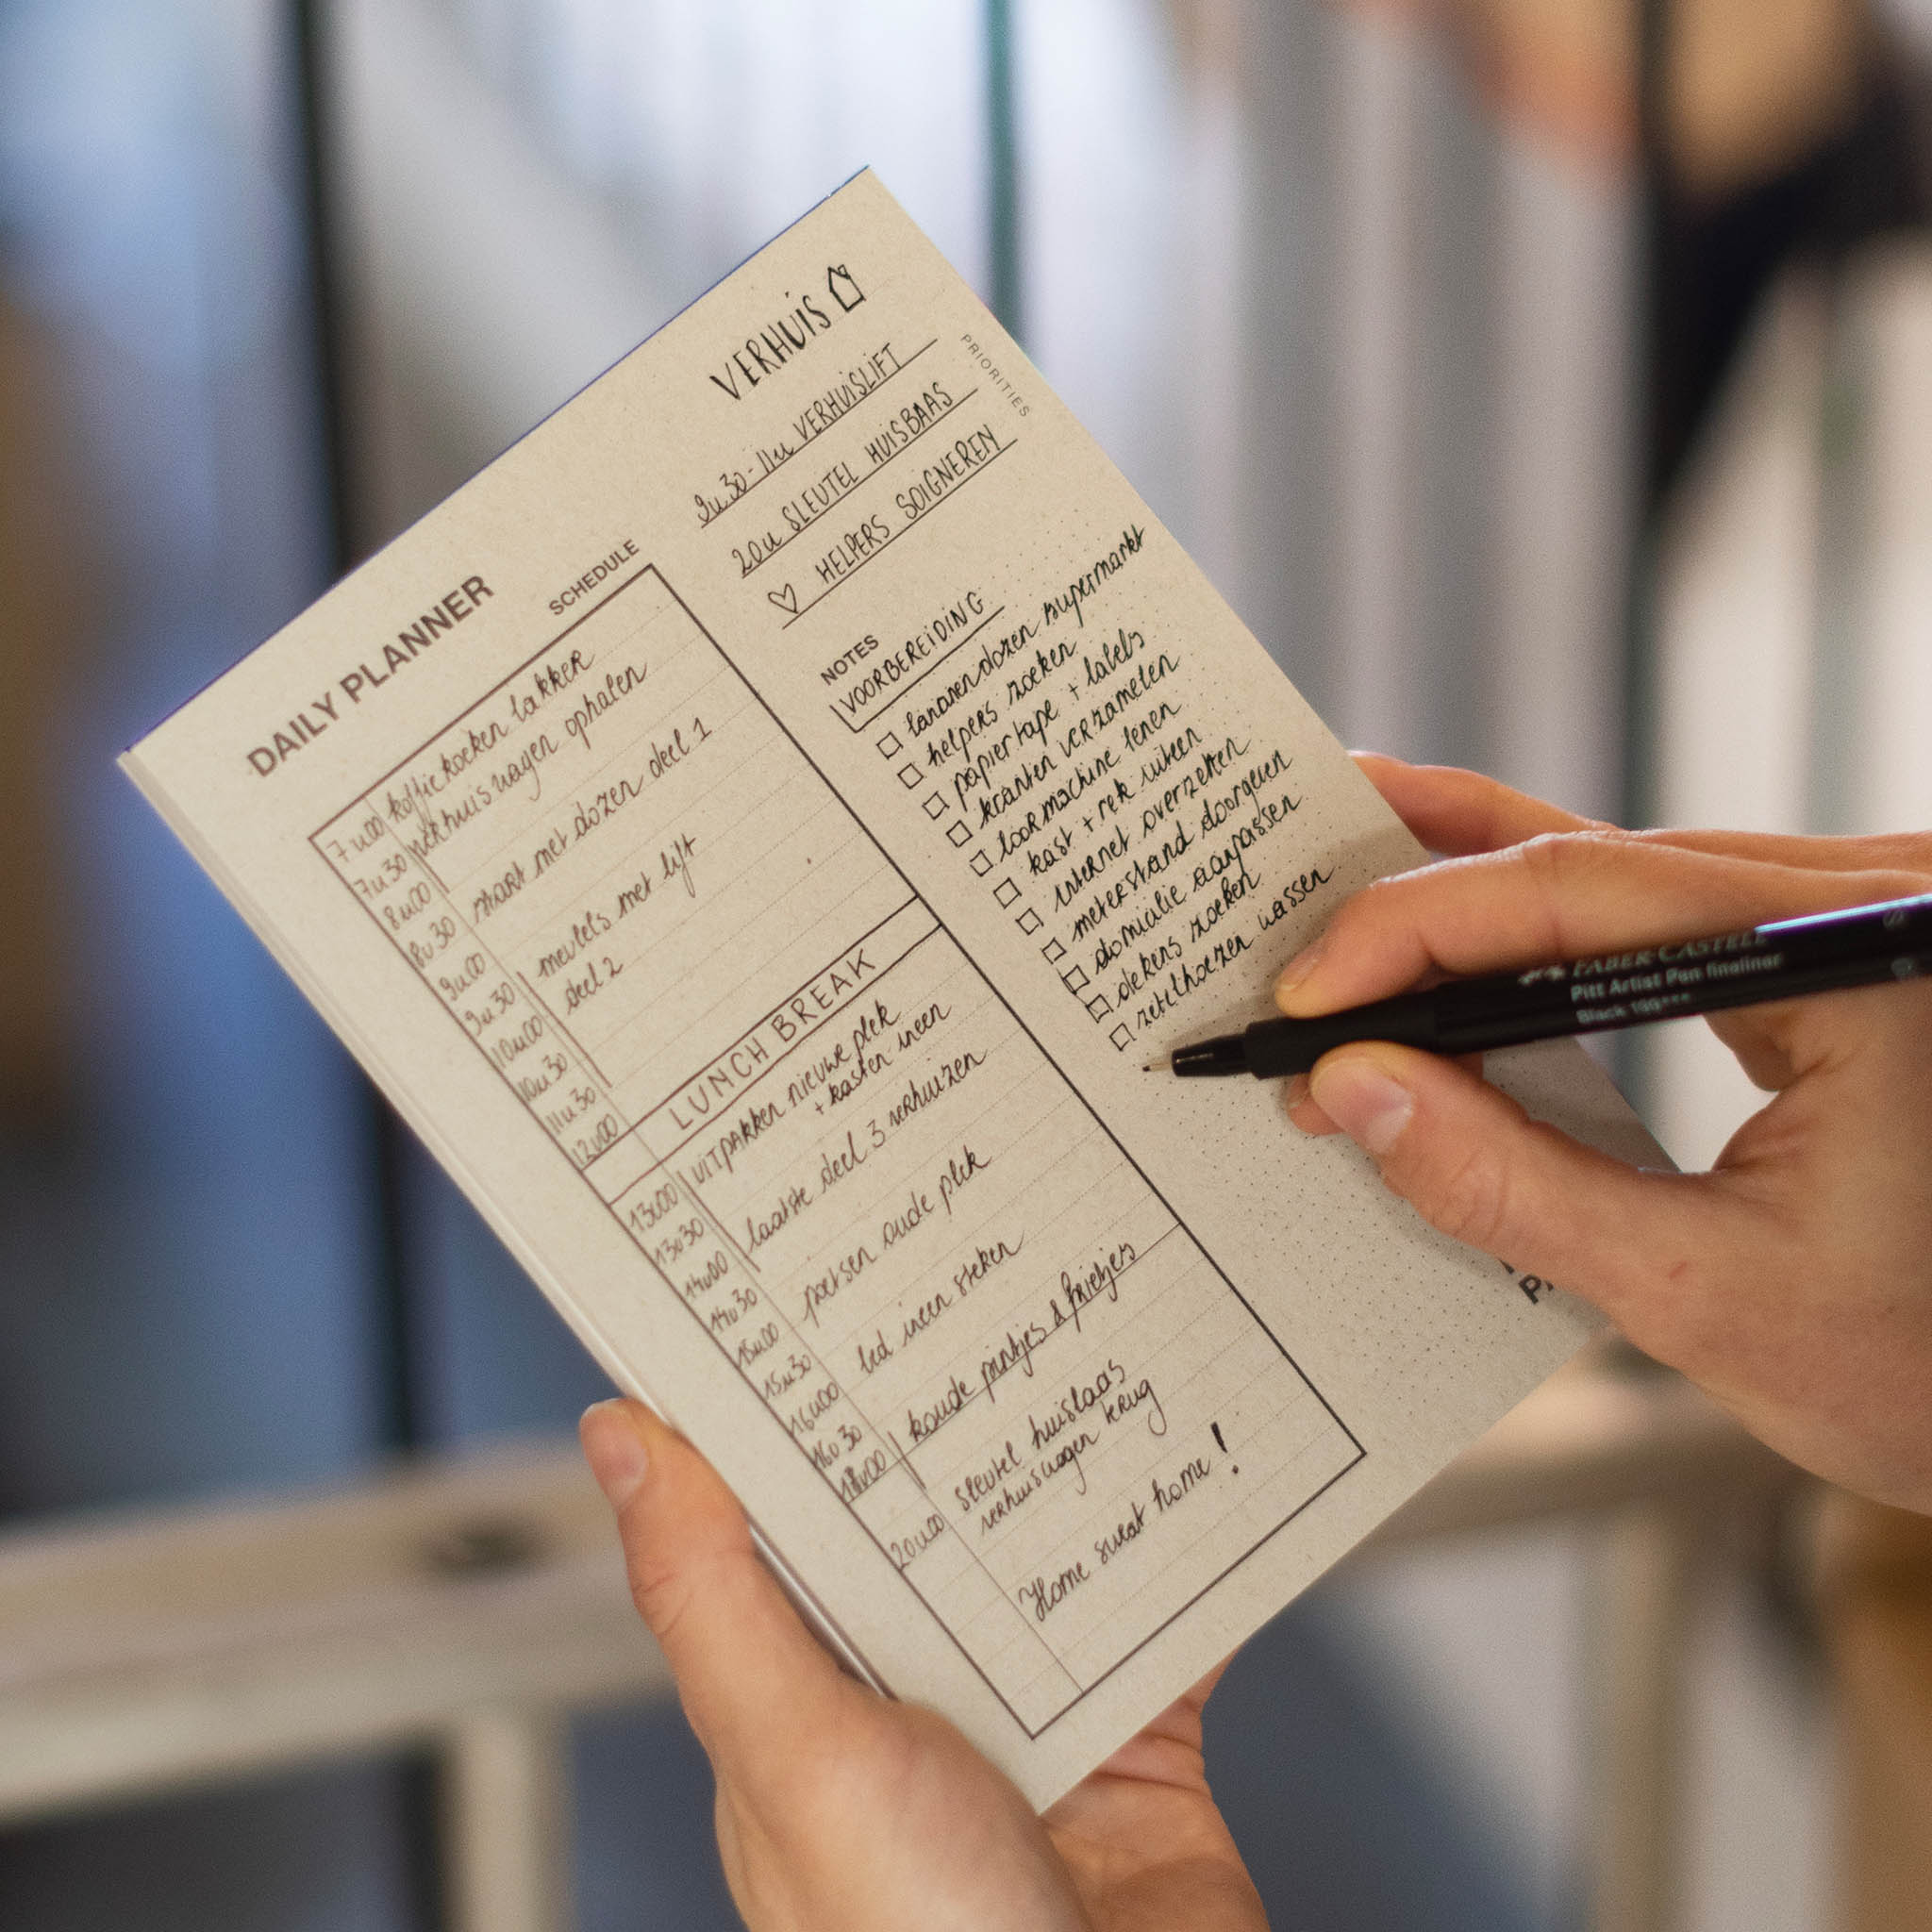 VERHUIS
PRIORITIES
9u.30-11u VERHUISLIFT
20u SLEUTEL HUISBAAS
♡ HELPERS SOIGNEREN
DAILY PLANNER
SCHEDULE
7u00 koffiekoeken bakker
7u30 verhuiswagen ophalen
8u00
8u30 start met dozen deel 1
9u00
9u30 meubels met lift
10u00 deel 2
10u30
11u30
12u00
LUNCH BREAK
13u00 UITpakken nieuwe plek
13u30 + kasten ineen
14u00 laatste deel 3 verhuizen
14u30
15u00 poetsen oude plek
15u30
16u00 bed ineen steken
16u30
18u00 koude pintjes & frietjes
20u00 sleutel huisbaas
verhuiswagen terug
Home sweat home!
NOTES
VOORBEREIDING
☐ bananendozen supermarkt
☐ helpers zoeken
☐ papiertape + labels
☐ kranten verzamelen
☐ boormachine lenen
☐ kast + rek uiteen
☐ internet overzetten
☐ meterstand doorgeven
☐ domicilie aanpassen
☐ dekens zoeken
☐ zetelhoezen wassen
FABER-CASTELL
Pitt Artist Pen fineliner
Black